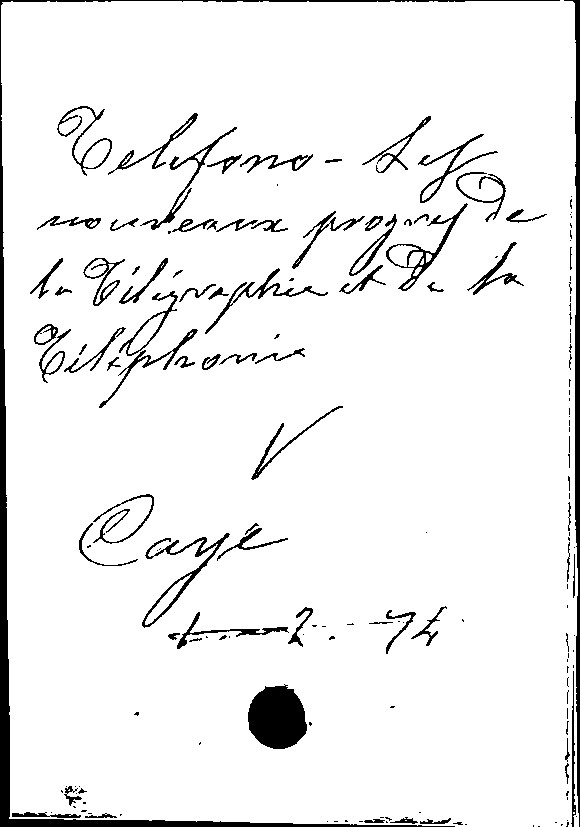 Telefono - Les
nouveaux progres de
la Télégraphie et de la
Téléphonie
V
Caye
1 - 2 . 74